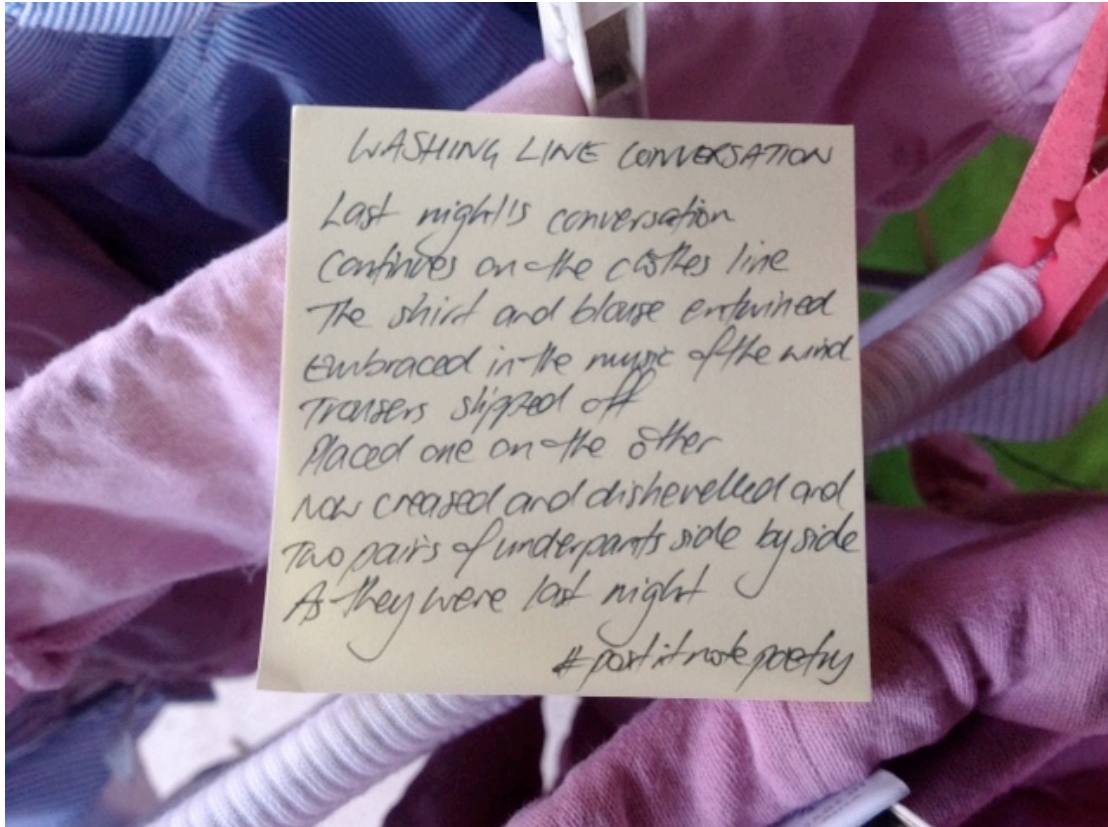 WASHING LINE CONVERSATION
Last night's conversation
Continues on the clothes line
The shirt and blouse entwined
Embraced in the music of the wind
Trousers slipped off
Placed one on the other
Now creased and dishevelled and
Two pairs of underpants side by side
As they were last night
#postitnotepoetry